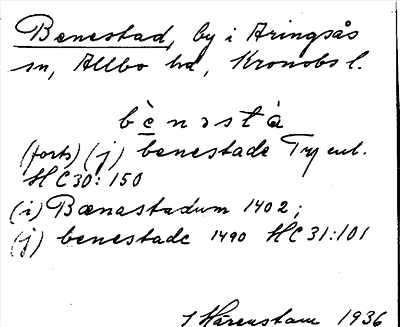 Benestad, by i Aringsås
sn, Allbo hd, Kronobs l.
bènəstà
(forts) (j) benestade Trj enl.
HC30:150
(i) Bænastadum 1402;
(j) benestade 1490 HC31:101
Härenstam 1936